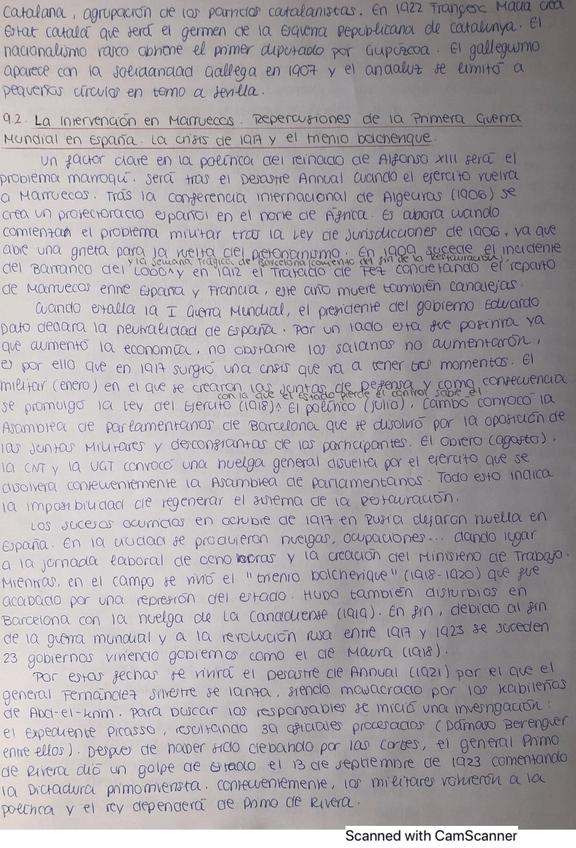 Catalana, agrupación de los partidos catalanistas. En 1922 Françesc Macià crea
Estat català que será el germen de la Esquerra Republicana de Catalunya. El
nacionalismo vasco obtiene el primer diputado por Guipúzcoa. El galleguismo
aparece con la Solidaridad Gallega en 1907 y el andaluz se limitó a
pequeños círculos en torno a Sevilla.
9.2. La intervención en Marruecos. Repercusiones de la Primera Guerra
Mundial en España. La crisis de 1917 y el trienio bolchevique.
Un factor clave en la política del reinado de Alfonso XIII será el
problema marroquí. Será tras el Desastre Annual cuando el ejército vuelva
a Marruecos. Tras la Conferencia Internacional de Algeciras (1906) se
crea un protectorado español en el norte de África. Es ahora cuando
comienzan el problema militar tras la Ley de Jurisdicciones de 1906, ya que
abre una grieta para la vuelta del pretorianismo. En 1909 sucede el incidente
y la Semana Trágica de Barcelona (comienzo del fin de la Restauración)
del Barranco del Lobo^ y en 1912 el Tratado de Fez concretando el reparto
de Marruecos entre España y Francia, este año muere también Canalejas.
Cuando estalla la I Guerra Mundial, el presidente del gobierno Eduardo
Dato declara la neutralidad de España. Por un lado esta fue positiva ya
que aumentó la economía, no obstante los salarios no aumentaron,
es por ello que en 1917 surgió una crisis que va a tener tres momentos. El
militar (enero) en el que se crearon las Juntas de Defensa y como consecuencia
con la que el estado pierde el control sobre él
se promulgó la Ley del Ejército (1918)^ El político (julio), Cambó convocó la
Asamblea de Parlamentarios de Barcelona que se disolvió por la oposición de
las Juntas Militares y desconfiantas de los participantes. El obrero (agosto),
la CNT y la UGT convocó una huelga general disuelta por el ejército que se
disolvería consecuentemente la Asamblea de Parlamentarios. Todo esto indica
la imposibilidad de regenerar el sistema de la Restauración.
Los sucesos ocurridos en octubre de 1917 en Rusia dejaron huella en
España. En la ciudad se produjeron huelgas, ocupaciones... dando lugar
a la jornada laboral de ocho horas y la creación del Ministerio de Trabajo.
Mientras, en el campo se vivió el "trienio bolchevique" (1918-1920) que fue
acabado por una represión del estado. Hubo también disturbios en
Barcelona con la huelga de La Canadiense (1919). En fin, debido al fin
de la guerra mundial y a la revolución rusa entre 1917 y 1923 se suceden
23 gobiernos viniendo gobiernos como el de Maura (1918).
Por estas fechas se vivirá el Desastre de Annual (1921) por el que el
general Fernández Silvestre se lanza, siendo masacrado por los kabileños
de Abd-el-krim. Para buscar los responsables se inició una investigación:
el Expediente Picasso, resultando 39 oficiales procesados (Dámaso Berenguer
entre ellos). Después de haber sido debatido por las Cortes, el general Primo
de Rivera dio un golpe de Estado el 13 de septiembre de 1923 comentando
la Dictadura primorriverista. Consecuentemente, los militares volvieron a la
política y el rey dependerá de Primo de Rivera.
Scanned with CamScanner